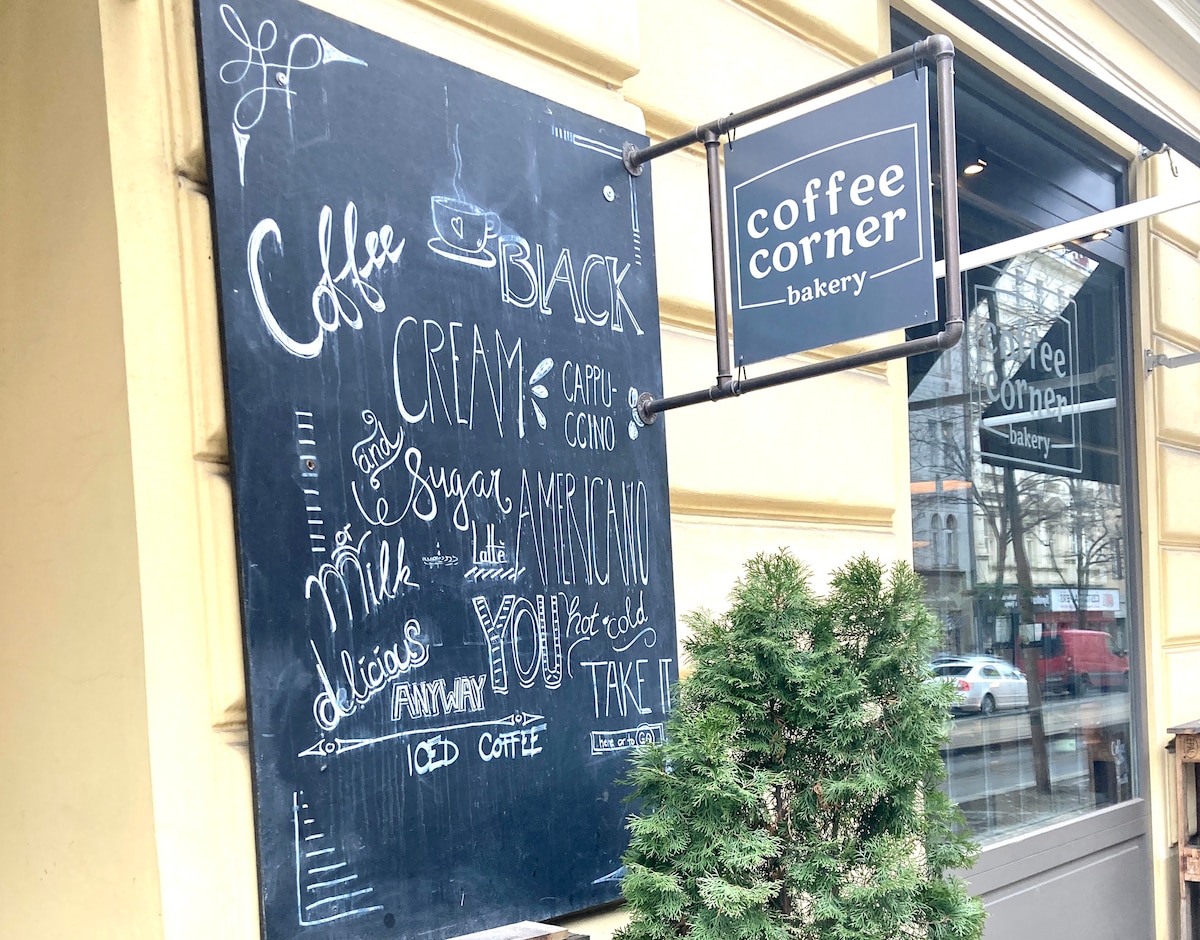 Coffee
BLACK
CREAM
CAPPU-
CCINO
and
Sugar
AMERICANO
or
Milk
Lattè
YOU
hot
cold
delicious
ANYWAY
TAKE IT
here or to GO
ICED COFFEE
coffee
corner
bakery
coffee
corner
bakery